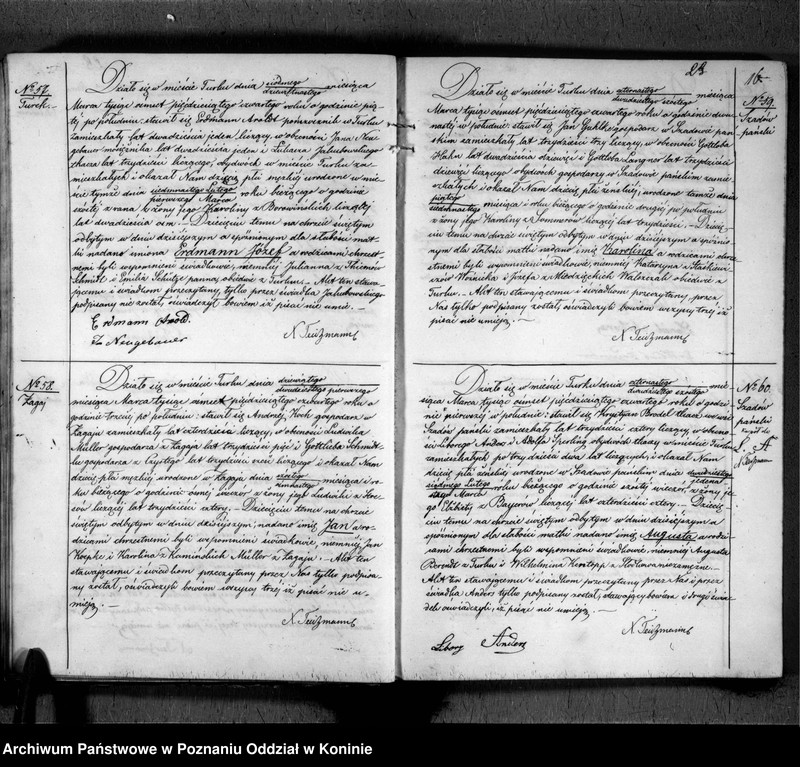 No. 57.
Turek.
Działo się w mieście Turku dnia siódmego / dziewiętnastego miesiąca
Marca tysiąc ośmset pięćdziesiątego czwartego roku o godzinie pią-
tej po południu stawił się Erdmann Aroldt w Turku
zamieszkały lat dwadzieścia jeden liczący, w obecności Jana Neu-
gebauer lat dwadzieścia jeden i Juliana Jakubowskiego
lat trzydzieści liczącego, obydwóch w mieście Turku za-
mieszkałych i okazał Nam dziecię płci męzkiej urodzone w mie-
ście tymże dnia siedmnastego Lutego / pierwszego Marca roku bieżącego o godzinie
szóstej z rana z żony jego Karoliny z liczącej
lat dwadzieścia ośm. – Dziecięciu temu na chrzcie świętym
odbytym w dniu dzisiejszym a spóźnionym dla słabości mat-
ki nadano imiona Erdmann Józef a rodzicami chrzest-
nemi byli wspomnieni świadkowie, niemniej Julianna z
Schmidt i Emilia Schultz panna obiedwie z Turku. – Akt ten stawa-
jącemu i świadkom przeczytany, tylko przez świadka Jakubowskiego
podpisany nie został, oświadczył bowiem iż pisać nie umie. –
Erdmann Arold.
Jan Neugebauer
N Teitzmann
No. 58.
Zagaj
Działo się w mieście Turku dnia dziewiątego / dwudziestego pierwszego
miesiąca Marca tysiąc ośmset pięćdziesiątego czwartego roku o
godzinie trzeciej po południu; stawił się Andrzej gospodarz w
Zagaju zamieszkały lat czterdzieści liczący, w obecności Ludwika
Müller gospodarza z Zagaja lat trzydzieści pięć i Gottlieba Schmidt-
ke gospodarza z lat trzydzieści liczącego i okazał Nam
dziecię płci męzkiej urodzone w Zagaju dnia szóstego / miesiąca i ro-
ku bieżącego o godzinie ósmej wieczór z żony jego Ludwiki z
liczącej lat trzydzieści cztery. – Dziecięciu temu na chrzcie
świętym odbytym w dniu dzisiejszym, nadano imię Jan a ro-
dzicami chrzestnemi byli wspomnieni świadkowie, niemniej Jan
i Karolina z Müller z Zagaju. – Akt ten
stawającemu i świadkom przeczytany przez Nas tylko podpisa-
ny został, oświadczyli bowiem wszyscy trzej iż pisać nie u-
mieją. –
N Teitzmann
23
16
No. 59.
Szadów
pański
Działo się w mieście Turku dnia czternastego / dwudziestego szóstego miesiąca
Marca tysiąc ośmset pięćdziesiątego czwartego roku o godzinie dwu-
nastej w południe; stawił się Jan gospodarz w Szadowie pań-
skim zamieszkały lat trzydzieści trzy liczący, w obecności Gottlieba
Hahn lat dwadzieścia dziewięć i Gottlieba Langner lat trzydzieści
dziewięć liczącego obydwóch gospodarzy w Szadowie pańskim zamie-
szkałych i okazał Nam dziecię płci żeńskiej, urodzone tamże dnia
piątego / siedmnastego miesiąca i roku bieżącego o godzinie drugiej po południu
z żony jego Karoliny z Sommerów liczącej lat trzydzieści. – Dziecię-
ciu temu na chrzcie świętym odbytym w dniu dzisiejszym a spóźnio-
nym dla słabości matki nadano imię Karolina a rodzicami chrze-
stnemi byli wspomnieni świadkowie, niemniej Katarzyna z
i Józefa z obiedwie z
Turku. – Akt ten stawającemu i świadkom przeczytany, przez
Nas tylko podpisany został, oświadczyli bowiem wszyscy trzej iż
pisać nie umieją. –
N Teitzmann
No. 60.
Szadów
pański
N Teitzmann
Działo się w mieście Turku dnia czternastego / dwudziestego szóstego mie-
siąca Marca tysiąc ośmset pięćdziesiątego czwartego roku o godzi-
nie pierwszej w południe; stawił się Krystyan Brodel tkacz we wsi
Szadów pański zamieszkały lat trzydzieści cztery liczący, w obecno-
ści Liborego Anders i Adolfa Sperling obydwóch tkaczy w mieście Turku
zamieszkałych po trzydzieści dwa lat liczących, i okazał Nam
dziecię płci żeńskiej urodzone w Szadowie pańskim dnia dwudziestego
siódmego Lutego / jedena-
stego Marca roku bieżącego o godzinie szóstej wieczór, z żony je-
go Elżbiety z Bayerów liczącej lat czterdzieści cztery. – Dziecię-
ciu temu na chrzcie świętym odbytym w dniu dzisiejszym a
spóźnionym dla słabości matki nadano imię Augusta a rodzi-
cami chrzestnemi byli wspomnieni świadkowie, niemniej Augusta
z Turku i Wilhelmina niezamężna. –
Akt ten stawającemu i świadkom przeczytany przez Nas i przez
świadka Anders tylko podpisany został, stawający bowiem i drugi świa-
dek oświadczyli, iż pisać nie umieją. –
N Teitzmann
Libory Anders
Archiwum Państwowe w Poznaniu Oddział w Koninie